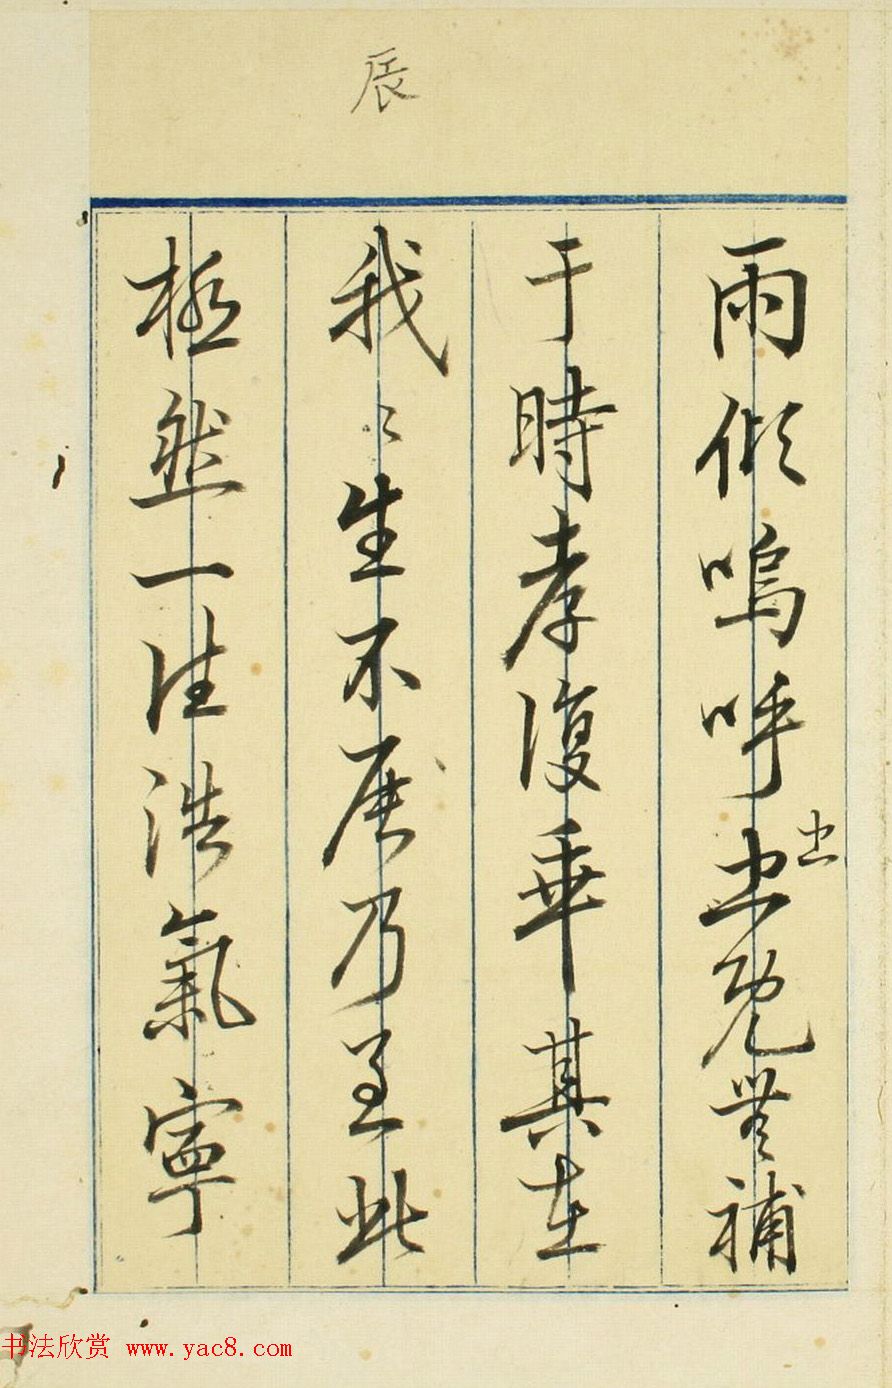 辰
雨嗚呼忠既無補
忠
于時孝復乖其在
我〻生不辰乃至此
極然一往浩氣寧
书法欣赏 www.yac8.com